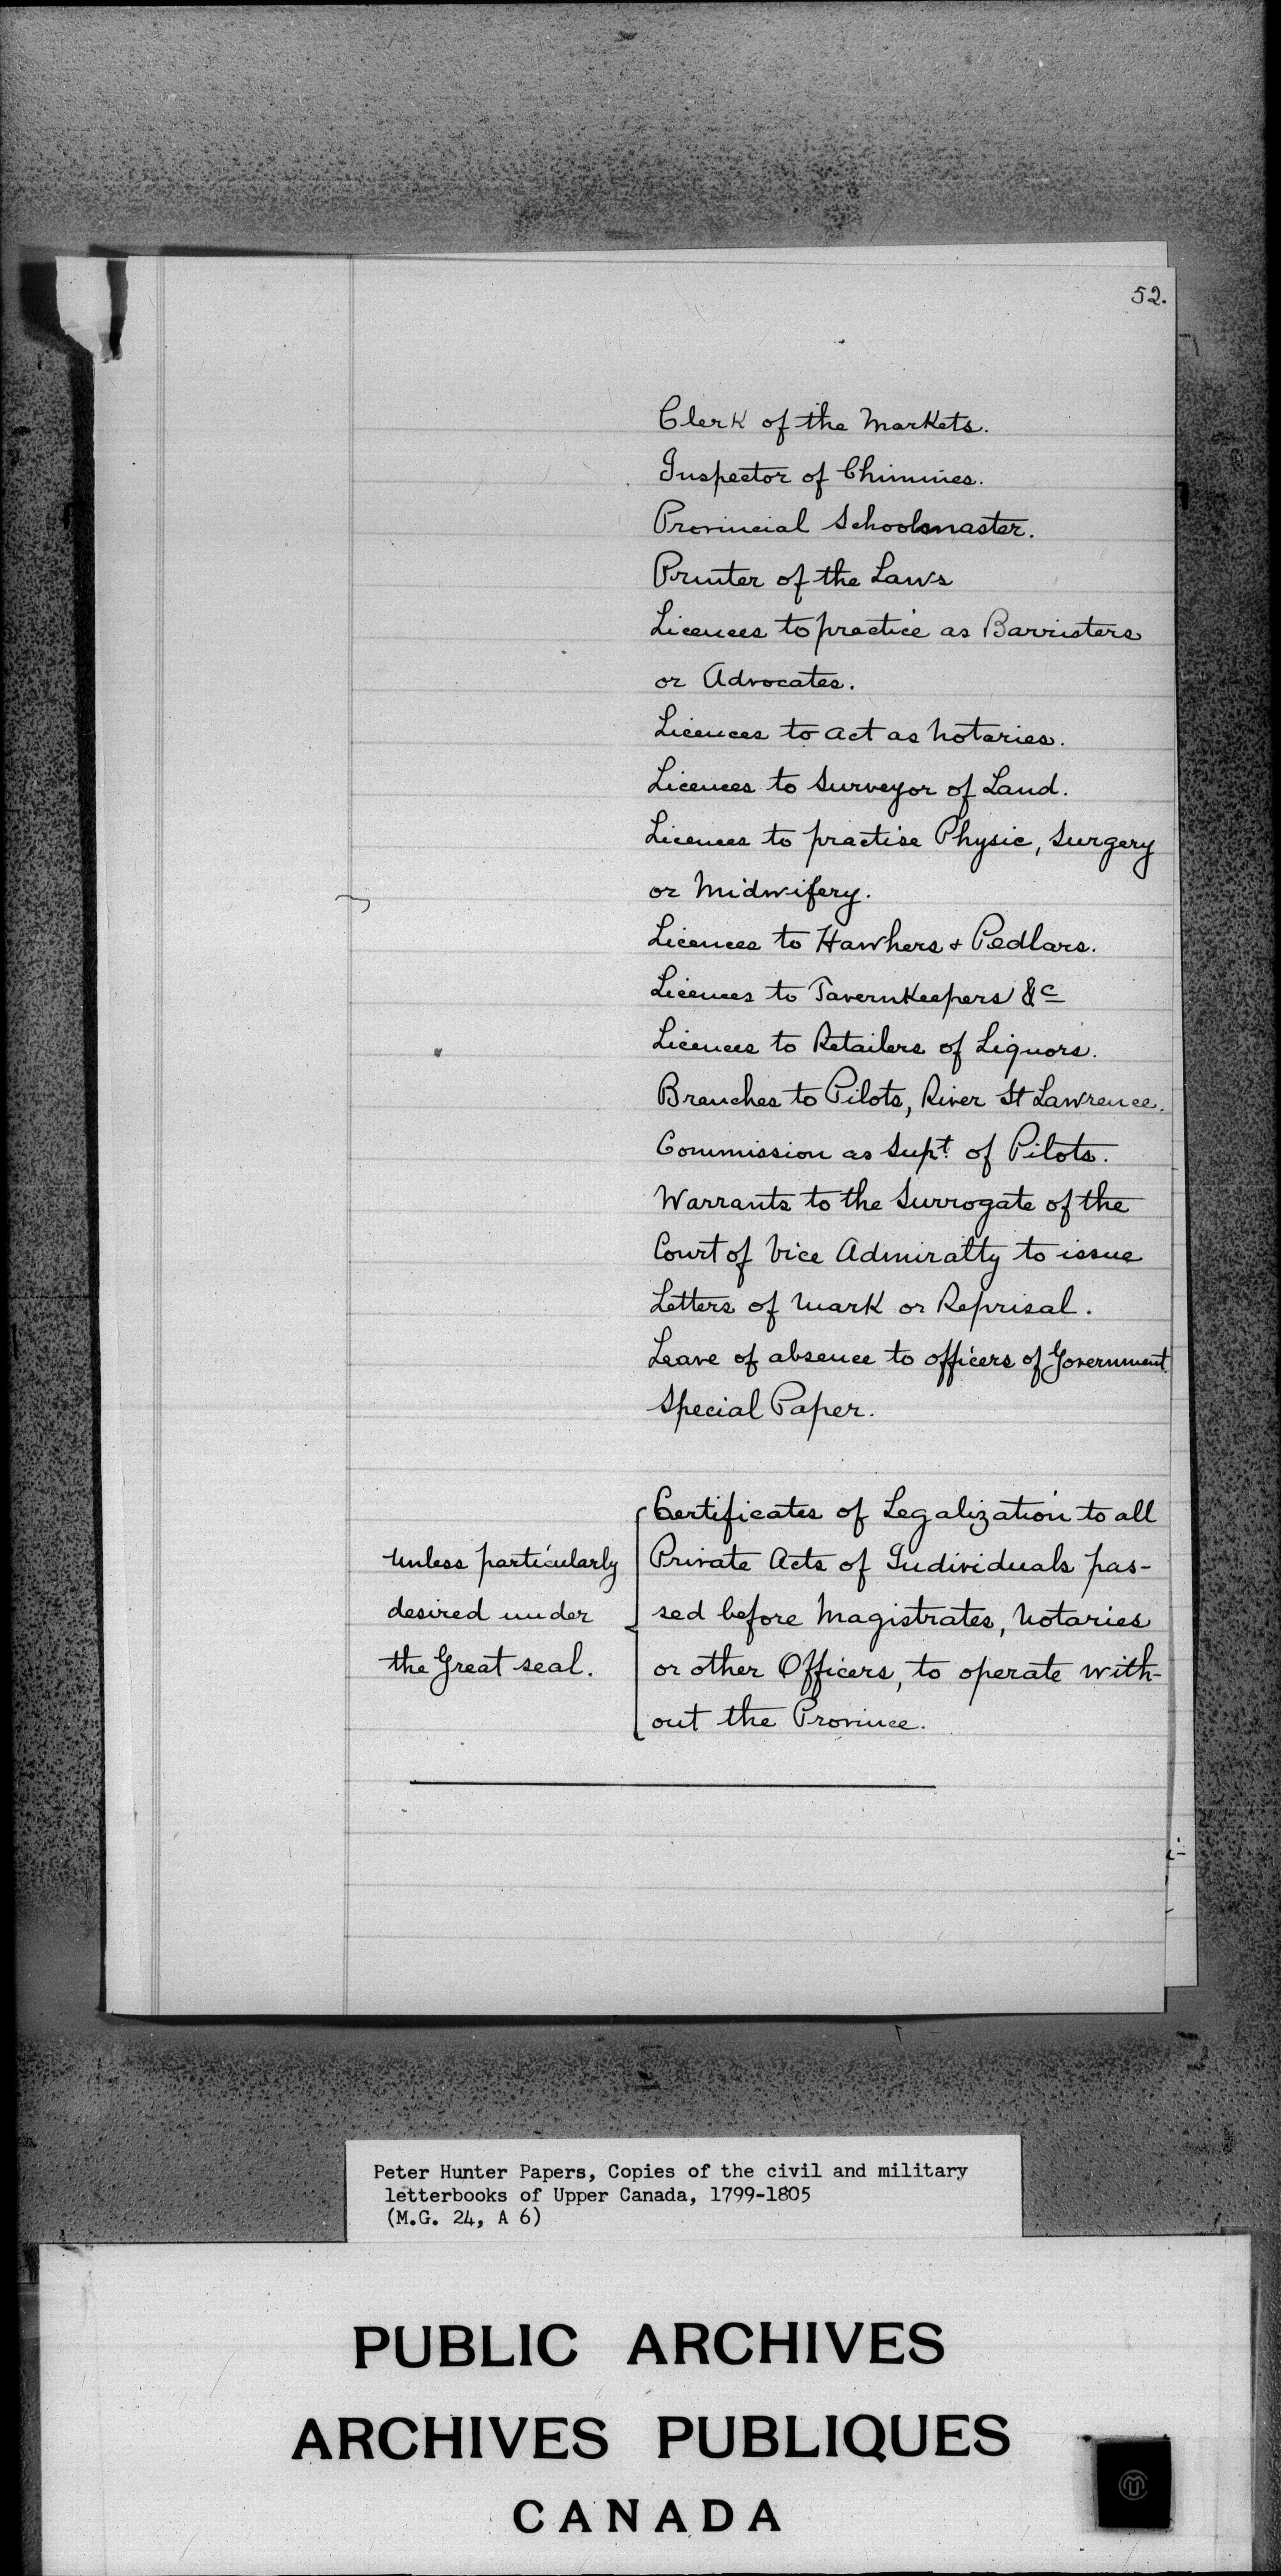 52.
Clerk of the Markets.
Inspector of Chimnies.
Provincial Schoolmaster.
Printer of the Laws
Licences to practice as Barristers
or Advocates.
Licences to act as Notaries.
Licences to Surveyor of Land.
Licences to practise Physic, Surgery
or Midwifery.
Licences to Hawkers & Pedlars.
Licences to TavernKeepers &c
Licences to Retailers of Liquors.
Branches to Pilots, River St Lawrence.
Commission as Supt. of Pilots.
Warrants to the Surrogate of the
Court of Vice Admiralty to issue
Letters of Mark or Reprisal.
Leave of absence to officers of Government
Special Paper.
Unless particularly
desired under
the Great seal.
Certificates of Legalization to all
Private Acts of Individuals pas-
sed before Magistrates, Notaries
or other Officers, to operate with-
out the Province.
Peter Hunter Papers, Copies of the civil and military
letterbooks of Upper Canada, 1799-1805
(M.G. 24, A 6)
PUBLIC ARCHIVES
ARCHIVES PUBLIQUES
CANADA